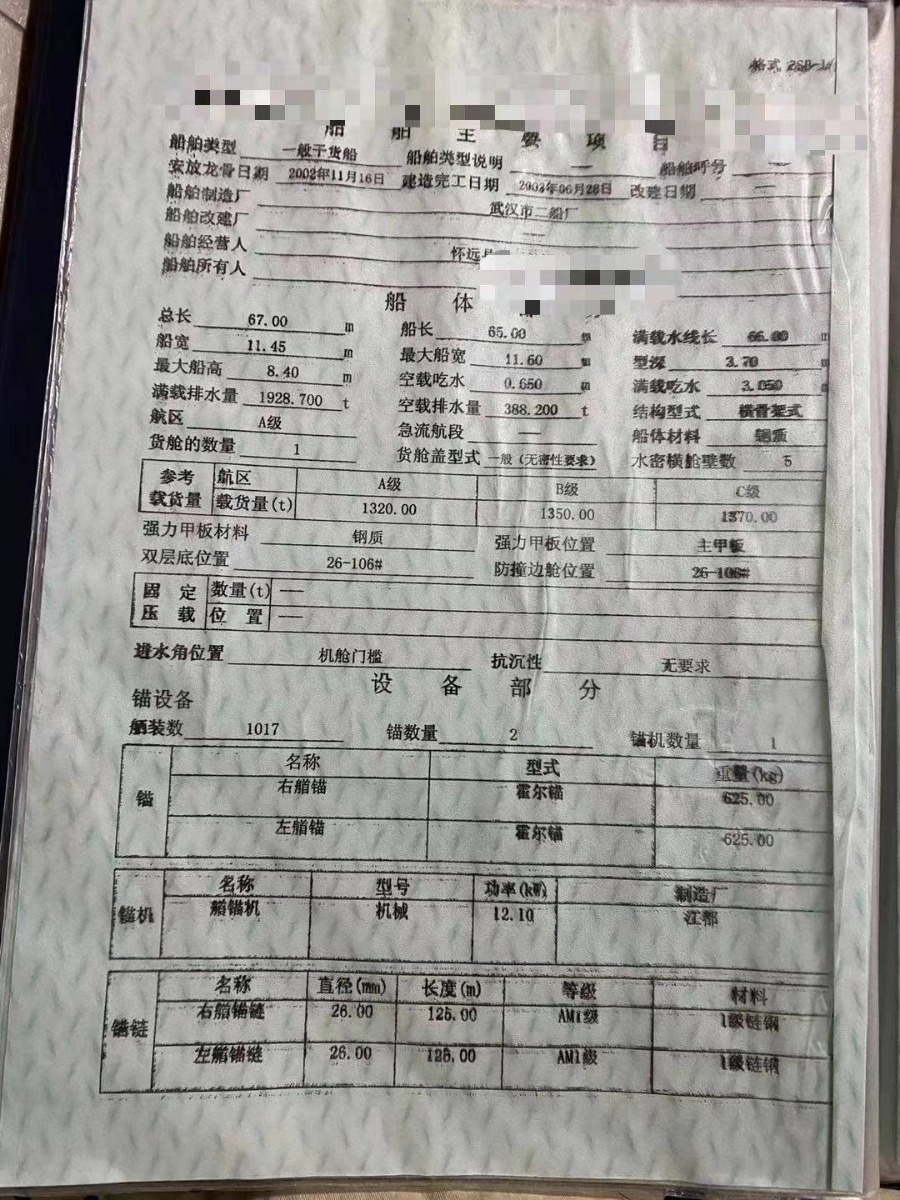 格式 ZSB-1
船 舶 主 要 项 目
船舶类型 一般干货船 船舶类型说明 — 船舶呼号 —
安放龙骨日期 2002年11月16日 建造完工日期 2003年06月28日 改建日期 —
船舶制造厂 武汉市二船厂
船舶改建厂 —
船舶经营人 怀远县
船舶所有人
船 体
总长 67.00 m 船长 65.00 m 满载水线长 66.00 m
船宽 11.45 m 最大船宽 11.60 m 型深 3.70 m
最大船高 8.40 m 空载吃水 0.650 m 满载吃水 3.050 m
满载排水量 1928.700 t 空载排水量 388.200 t 结构型式 横骨架式
航区 A级 急流航段 — 船体材料 钢质
货舱的数量 1 货舱盖型式 一般(无密性要求) 水密横舱壁数 5
参考 航区 A级 B级 C级
载货量 载货量(t) 1320.00 1350.00 1370.00
强力甲板材料 钢质 强力甲板位置 主甲板
双层底位置 26-106# 防撞边舱位置 26-106#
固定 数量(t) —
压载 位置 —
进水角位置 机舱门槛 抗沉性 无要求
设 备 部 分
锚设备
舾装数 1017 锚数量 2 锚机数量 1
锚 名称 型式 重量(kg)
右艏锚 霍尔锚 625.00
左艏锚 霍尔锚 625.00
锚机 名称 型号 功率(kW) 制造厂
艏锚机 机械 12.10 江都
锚链 名称 直径(mm) 长度(m) 等级 材料
右艏锚链 26.00 125.00 AM1级 1级链钢
左艏锚链 26.00 125.00 AM1级 1级链钢